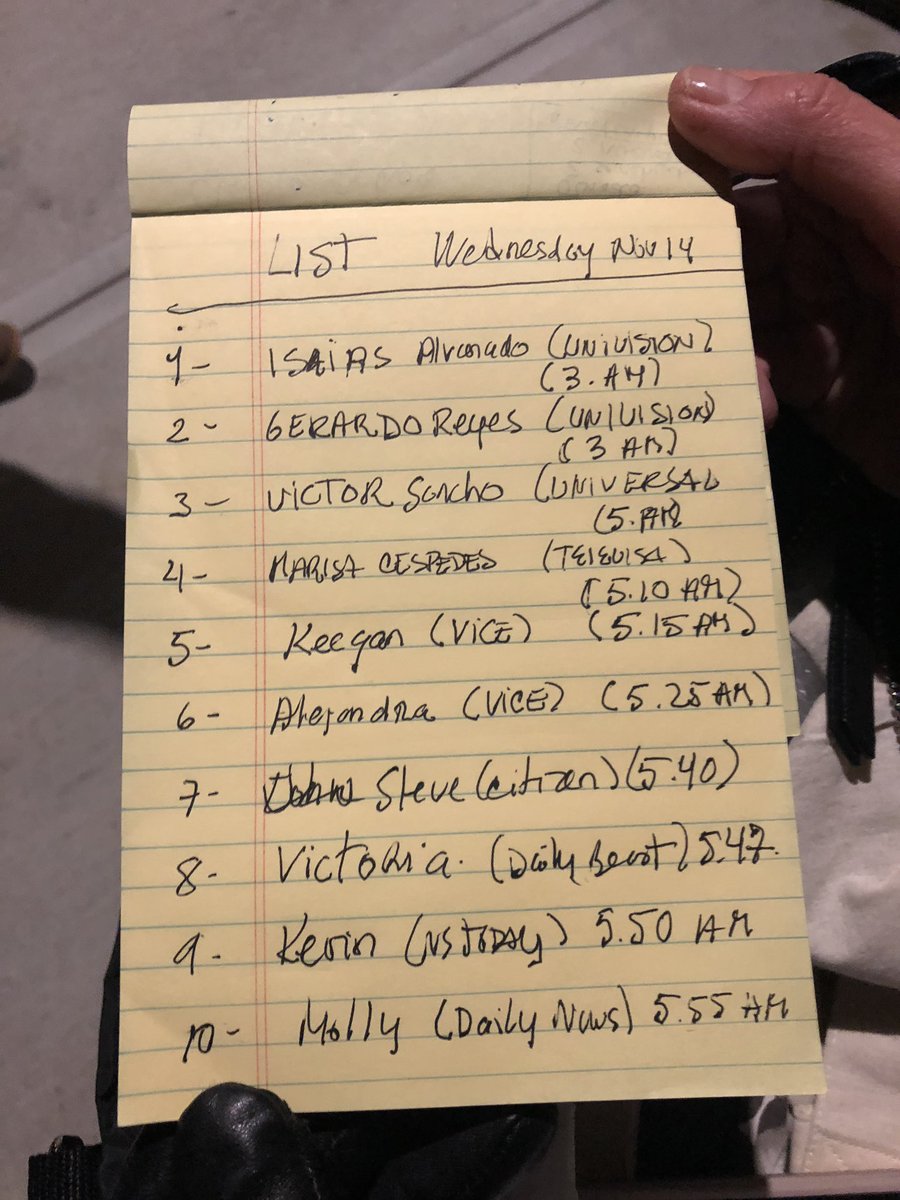 LIST Wednesday Nov 14
1- ISAIAS Alvarado (UNIVISION)
(3. AM)
2- GERARDO Reyes (UNIVISION)
(3 AM)
3- VICTOR Sancho (UNIVERSAL
(5. AM
4- MARISA CESPEDES (TELEVISA)
(5.10 AM)
5- Keegan (VICE) (5.15 AM)
6- Alejandra (VICE) (5.25 AM)
7- Steve (citizen) (5.40)
8- Victoria. (Daily Beast) 5.47.
9- Kevin (US TODAY) 5.50 AM
10- Molly (Daily News) 5.55 AM